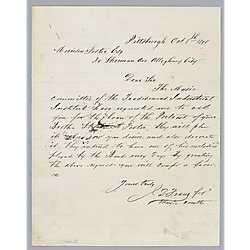 Pittsburgh Oct 1st 18
Morrison Foster Esq
Sherman Ave Allegheny City
Dear Sir
The Music
committee of the Industrial
Institute have requested me to ask
you for the loan of the Portrait of your
Brother Foster, they will place
it you desire, and also decorate
it. They intend to have one of his melodies
played by the Band every day. By granting
the above request you will confer a favor
Yours truly
Music Comtte